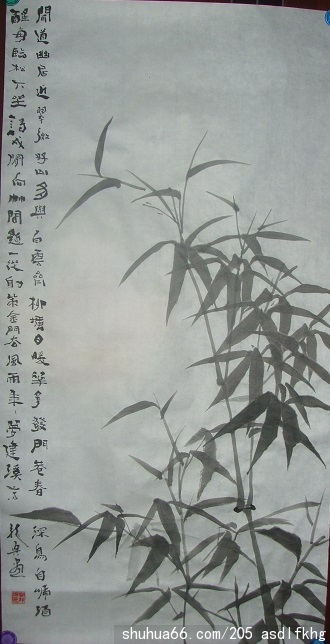 聞道幽居近翠微好山多與白雲齊柳塘日暖多發門巷春深鳥自啼酒
醒每臨松下坐詩成閑向竹間題一從射策金門風雨年年夢建溪
shuhua66.com/205_asdlfkhg